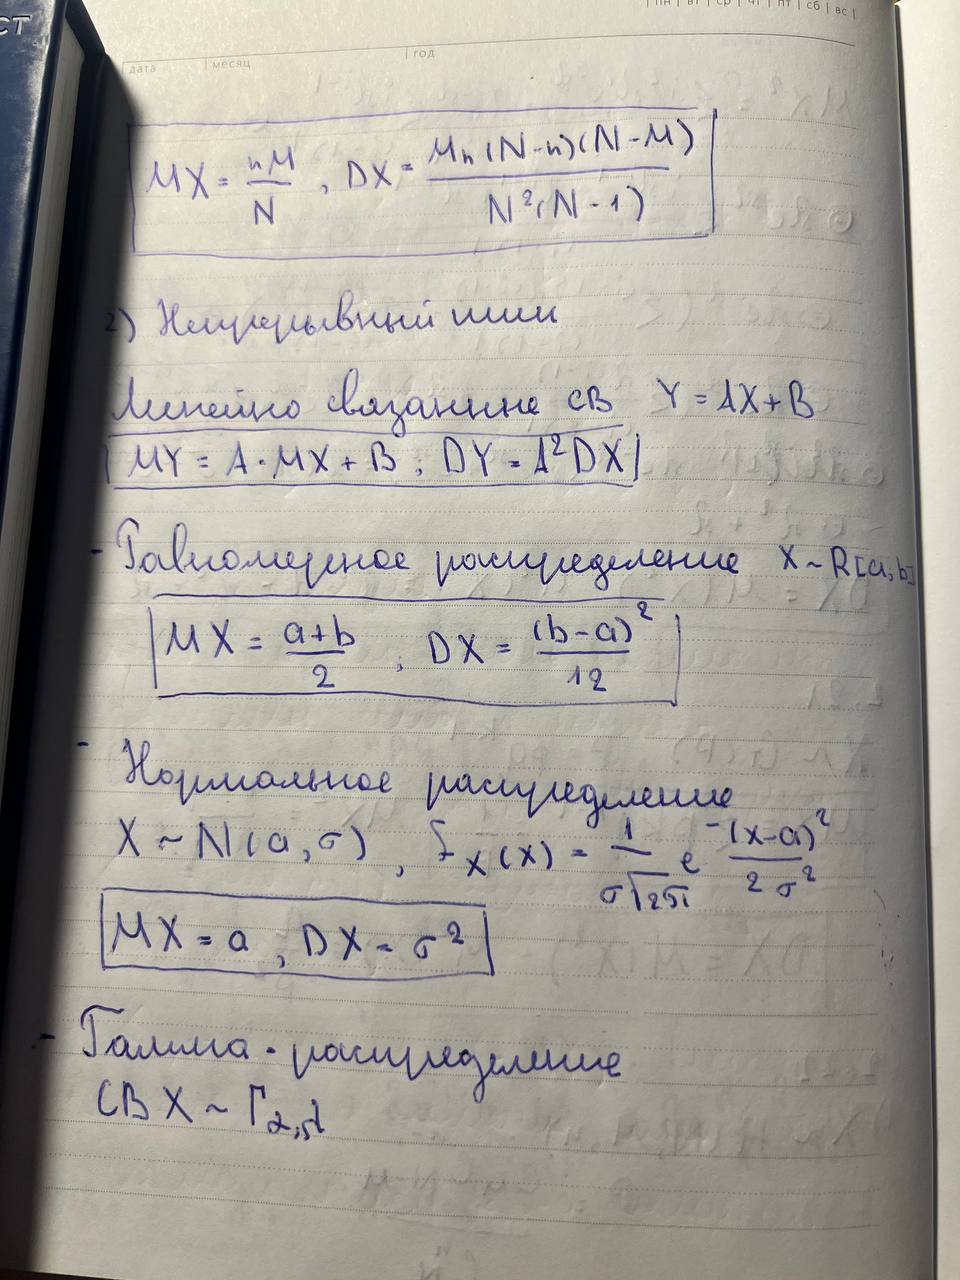 СТ
пн | вт | ср | чт | пт | сб | вс |
дата месяц год
MX = nM/N , DX = Mn(N-n)(N-M)/N²(N-1)
2) Непрерывный тип
Линейно связанные СВ Y = AX+B
MY = A·MX+B ; DY = A²DX
- Равномерное распределение X ~ R[a,b]
MX = a+b/2 , DX = (b-a)²/12
- Нормальное распределение
X ~ N(a,σ) , f_X(x) = 1/σ√2π e -(x-a)²/2σ²
MX = a , DX = σ²
- Гамма-распределение
СВ X ~ Г α,λ